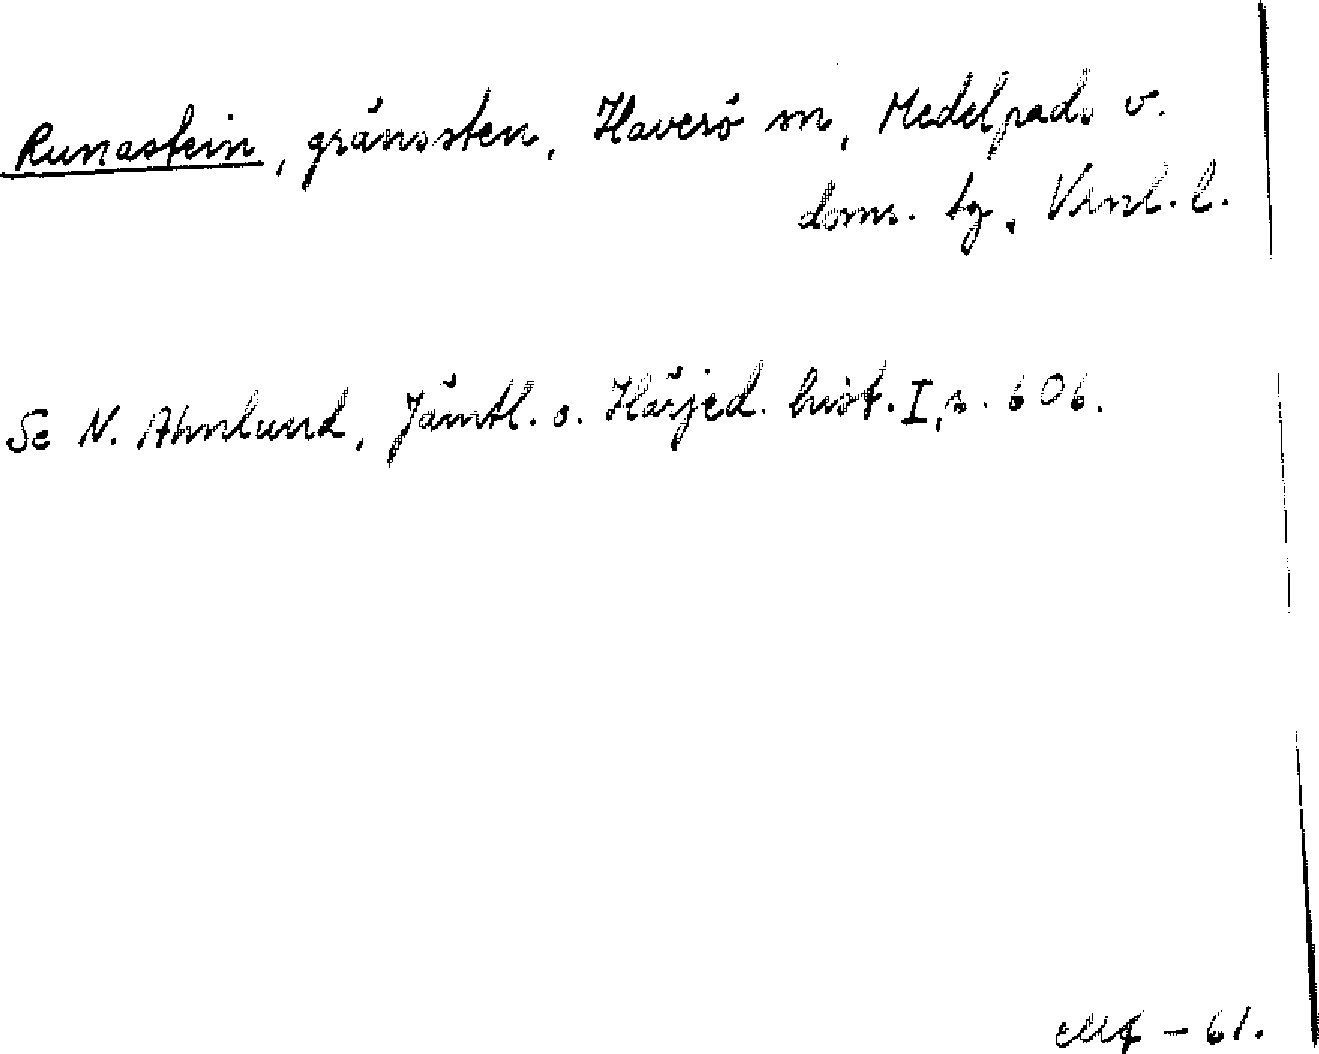 Runastein, gränssten, Haverö sn, Medelpads v.
doms. tg, Vnrl. l.
Se N. Ahnlund, Jämtl. o. Härjed. hist. I, s. 606.
– 61.